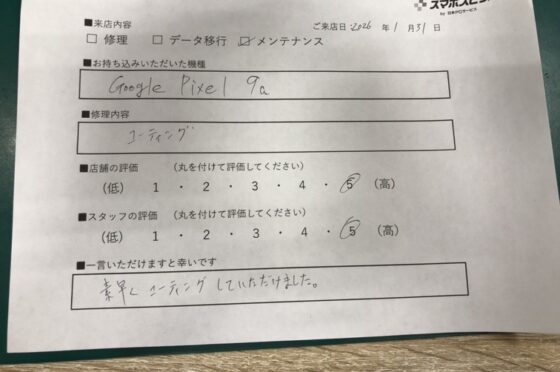 by 日本PCサービス
■来店内容
ご来店日 2026 年 1 月 31 日
□ 修理 □ データ移行 ☑ メンテナンス
■お持ち込みいただいた機種
Google Pixel 9a
■修理内容
コーティング
■店舗の評価 (丸を付けて評価してください)
(低) 1 ・ 2 ・ 3 ・ 4 ・ 5 (高)
■スタッフの評価 (丸を付けて評価してください)
(低) 1 ・ 2 ・ 3 ・ 4 ・ 5 (高)
■一言いただけますと幸いです
素早くコーティングしていただけました。